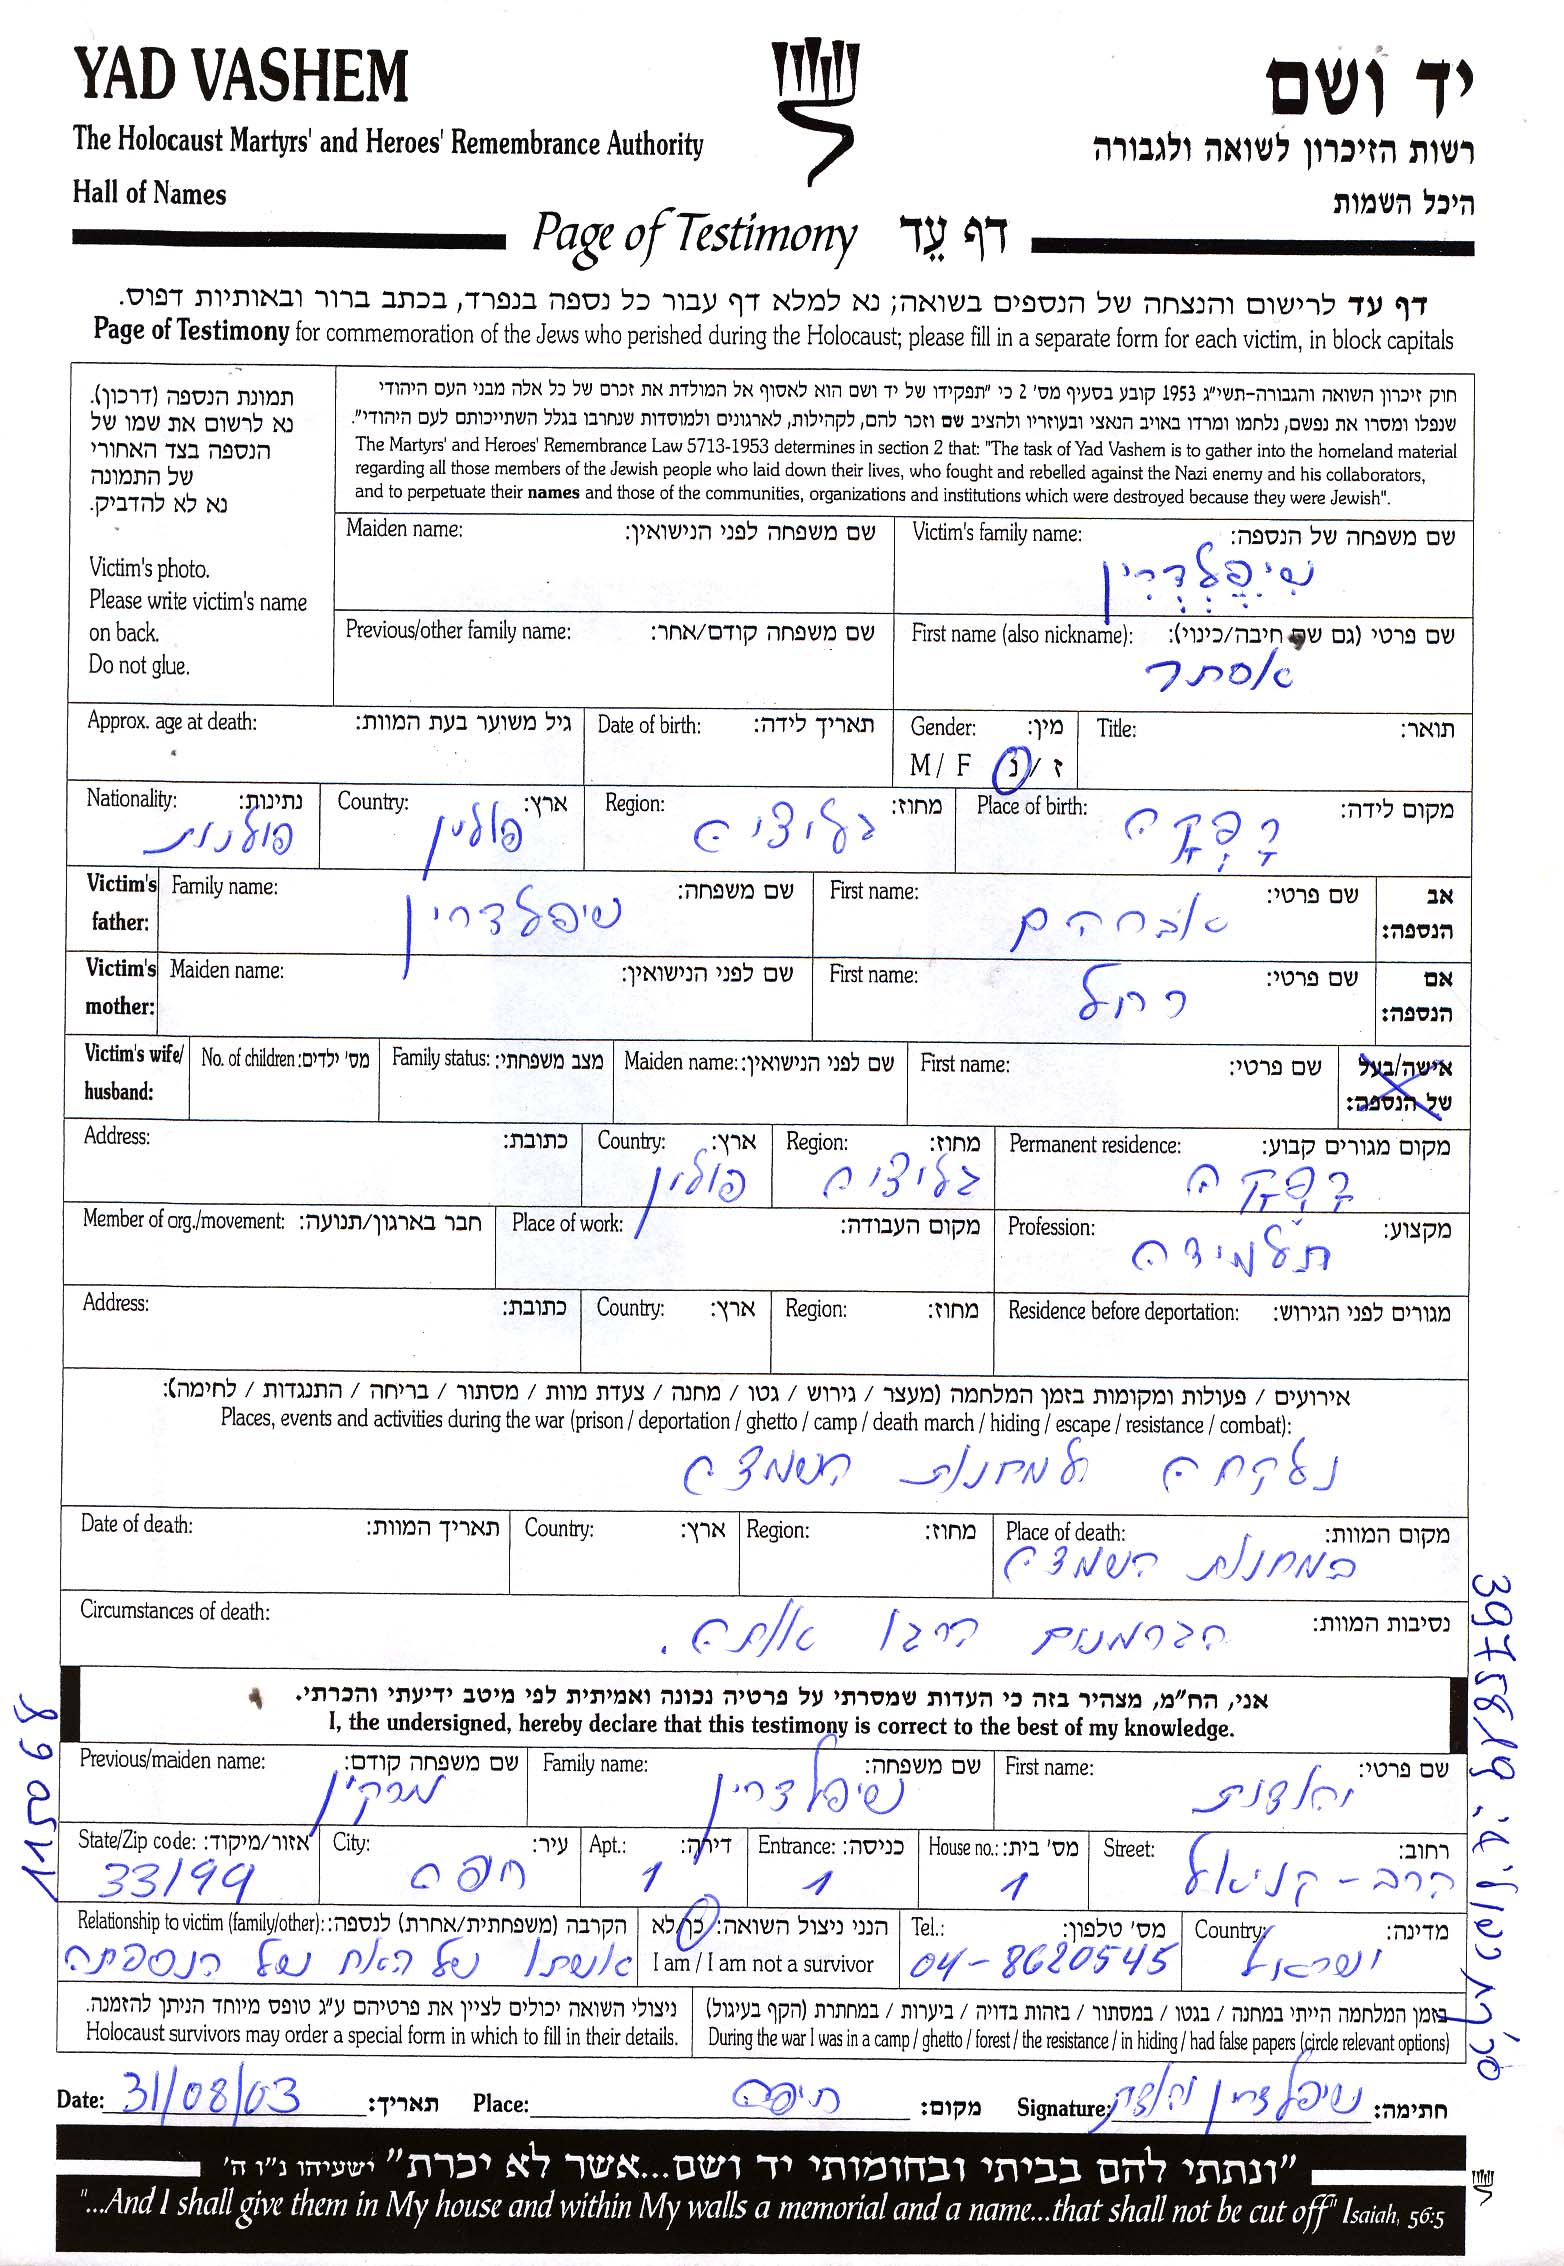 YAD VASHEM
The Holocaust Martyrs' and Heroes' Remembrance Authority
Hall of Names
יד ושם
רשות הזיכרון לשואה ולגבורה
היכל השמות
Page of Testimony דף עֵד
דף עד לרישום והנצחה של הנספים בשואה; נא למלא דף עבור כל נספה בנפרד, בכתב ברור ובאותיות דפוס.
Page of Testimony for commemoration of the Jews who perished during the Holocaust; please fill in a separate form for each victim, in block capitals
תמונת הנספה (דרכון).
נא לרשום את שמו של
הנספה בצד האחורי
של התמונה
נא לא להדביק.
Victim's photo.
Please write victim's name
on back.
Do not glue.
חוק זיכרון השואה והגבורה-תשי"ג 1953 קובע בסעיף מס' 2 כי "תפקידו של יד ושם הוא לאסוף אל המולדת את זכרם של כל אלה מבני העם היהודי
שנפלו ומסרו את נפשם, נלחמו ומרדו באויב הנאצי ובעוזריו ולהציב שם וזכר להם, לקהילות, לארגונים ולמוסדות שנחרבו בגלל השתייכותם לעם היהודי".
The Martyrs' and Heroes' Remembrance Law 5713-1953 determines in section 2 that: "The task of Yad Vashem is to gather into the homeland material
regarding all those members of the Jewish people who laid down their lives, who fought and rebelled against the Nazi enemy and his collaborators,
and to perpetuate their names and those of the communities, organizations and institutions which were destroyed because they were Jewish".
Maiden name: שם משפחה לפני הנישואין:
Victim's family name: שם משפחה של הנספה:
שיפלדרין
Previous/other family name: שם משפחה קודם/אחר:
First name (also nickname): שם פרטי (גם שם חיבה/כינוי):
אסתר
Approx. age at death: גיל משוער בעת המוות:
Date of birth: תאריך לידה:
Gender: מין:
M / F ז / נ
Title: תואר:
Nationality: נתינות:
פולנות
Country: ארץ:
פולין
Region: מחוז:
גליציה
Place of birth: מקום לידה:
דפקה
Victim's father:
Family name: שם משפחה:
שיפלדרין
First name: שם פרטי:
אברהם
אב הנספה:
Victim's mother:
Maiden name: שם לפני הנישואין:
First name: שם פרטי:
רחל
אם הנספה:
Victim's wife/ husband:
No. of children: מס' ילדים:
Family status: מצב משפחתי:
Maiden name: שם לפני הנישואין:
First name: שם פרטי:
אישה/בעל של הנספה:
Address: כתובת:
Country: ארץ:
פולין
Region: מחוז:
גליציה
Permanent residence: מקום מגורים קבוע:
דפקה
Member of org./movement: חבר בארגון/תנועה:
Place of work: מקום העבודה:
Profession: מקצוע:
תלמידה
Address: כתובת:
Country: ארץ:
Region: מחוז:
Residence before deportation: מגורים לפני הגירוש:
אירועים / פעולות ומקומות בזמן המלחמה (מעצר / גירוש / גטו / מחנה / צעדת מוות / מסתור / בריחה / התנגדות / לחימה):
Places, events and activities during the war (prison / deportation / ghetto / camp / death march / hiding / escape / resistance / combat):
נלקחה למחנות השמדה
Date of death: תאריך המוות:
Country: ארץ:
Region: מחוז:
Place of death: מקום המוות:
במחנות השמדה
Circumstances of death: נסיבות המוות:
הגרמנים הרגו אותה.
אני, הח"מ, מצהיר בזה כי העדות שמסרתי על פרטיה נכונה ואמיתית לפי מיטב ידיעתי והכרתי.
I, the undersigned, hereby declare that this testimony is correct to the best of my knowledge.
Previous/maiden name: שם משפחה קודם:
מרקין
Family name: שם משפחה:
שיפלדרין
First name: שם פרטי:
State/Zip code: אזור/מיקוד:
33199
City: עיר:
חיפה
Apt.: דירה:
1
Entrance: כניסה:
1
House no.: מס' בית:
1
Street: רחוב:
הרב - קניאל
Relationship to victim (family/other): הקרבה (משפחתית/אחרת) לנספה:
אשתו של האח של הנספתה
הנני ניצול השואה: כן/לא
I am / I am not a survivor
Tel.: מס' טלפון:
04-8620545
Country: מדינה:
ישראל
ניצולי השואה יכולים לציין את פרטיהם ע"ג טופס מיוחד הניתן להזמנה.
Holocaust survivors may order a special form in which to fill in their details.
בזמן המלחמה הייתי במחנה / בגטו / במסתור / בזהות בדויה / ביערות / במחתרת (הקף בעיגול)
During the war I was in a camp / ghetto / forest / the resistance / in hiding / had false papers (circle relevant options)
Date: 31/08/03 תאריך:
Place: חיפה מקום:
Signature: שיפלדרין חתימה:
"ונתתי להם בביתי ובחומותי יד ושם...אשר לא יכרת" ישעיהו נ"ו ה'
"...And I shall give them in My house and within My walls a memorial and a name...that shall not be cut off" Isaiah, 56:5
115068